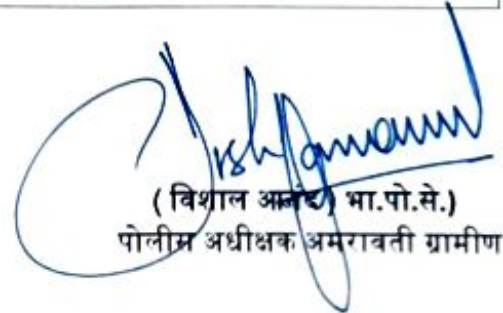 ( विशाल आनंद ) भा.पो.से.)
पोलीस अधीक्षक अमरावती ग्रामीण